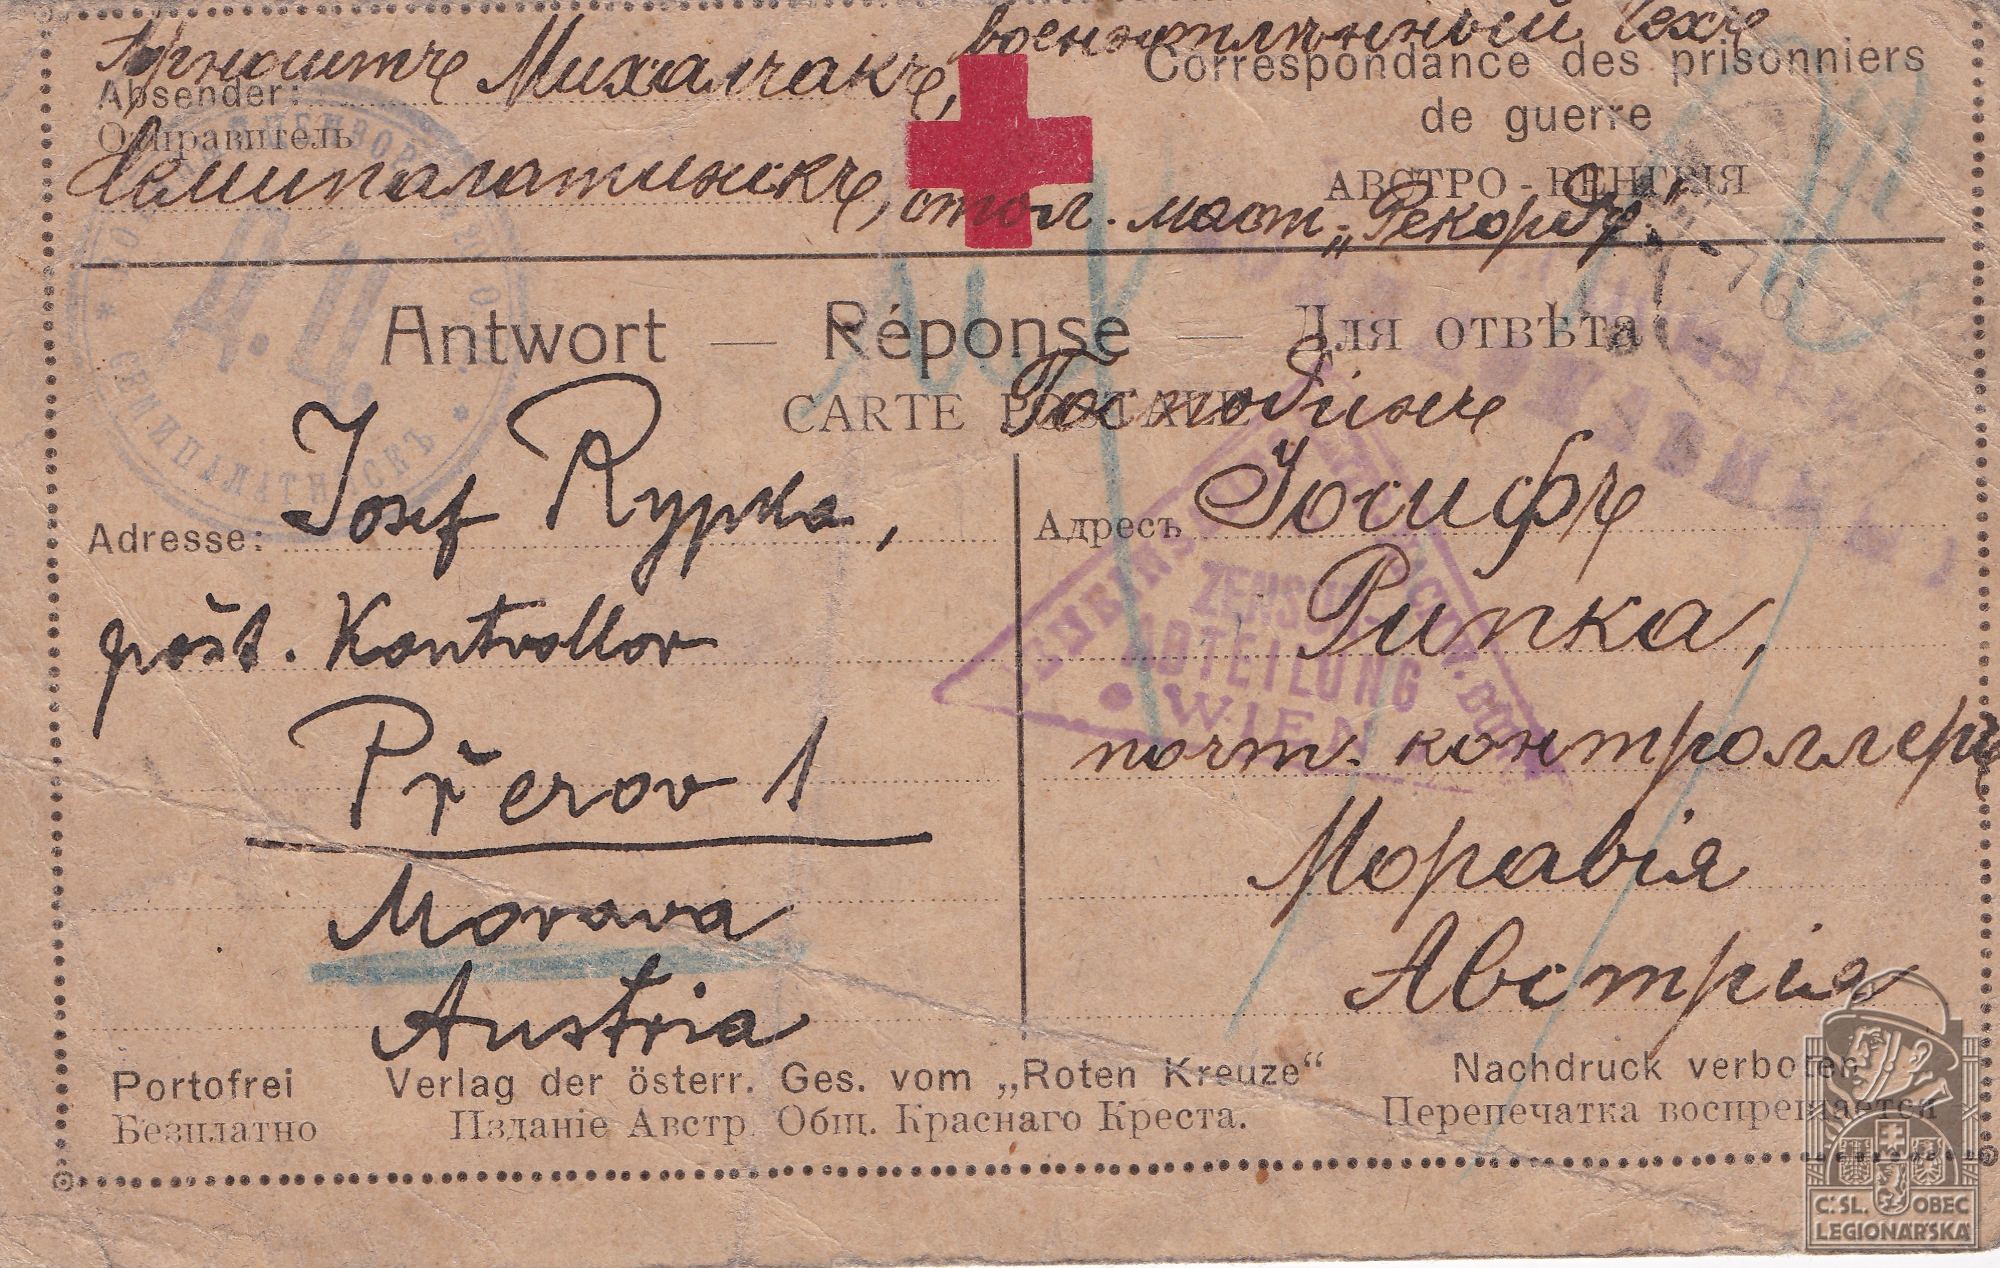 Арноштъ Михалчакъ, военноплѣнный Чехъ
Absender:
Отправитель
Correspondance des prisonniers
de guerre
Семипалатинскъ, стол. маст. „Рекордъ“
АВСТРО-ВЕНГРІЯ
Д.Ц.
СЕМИПАЛАТИНСКЪ
Antwort — Réponse — Для отвѣта
CARTE POSTALE
Adresse: Josef Rypka,
pošt. Kontrollor
Přerov 1
Morava
Austria
Господинъ
Адресъ Іосифъ
Рипка,
почт. контроллеръ
Моравія
Австрія
ZENSUR-
ABTEILUNG
WIEN
Portofrei Verlag der österr. Ges. vom „Roten Kreuze“ Nachdruck verboten
Безплатно Изданіе Австр. Общ. Краснаго Креста. Перепечатка воспрещается
Č.SL. OBEC
LEGIONÁŘSKÁ